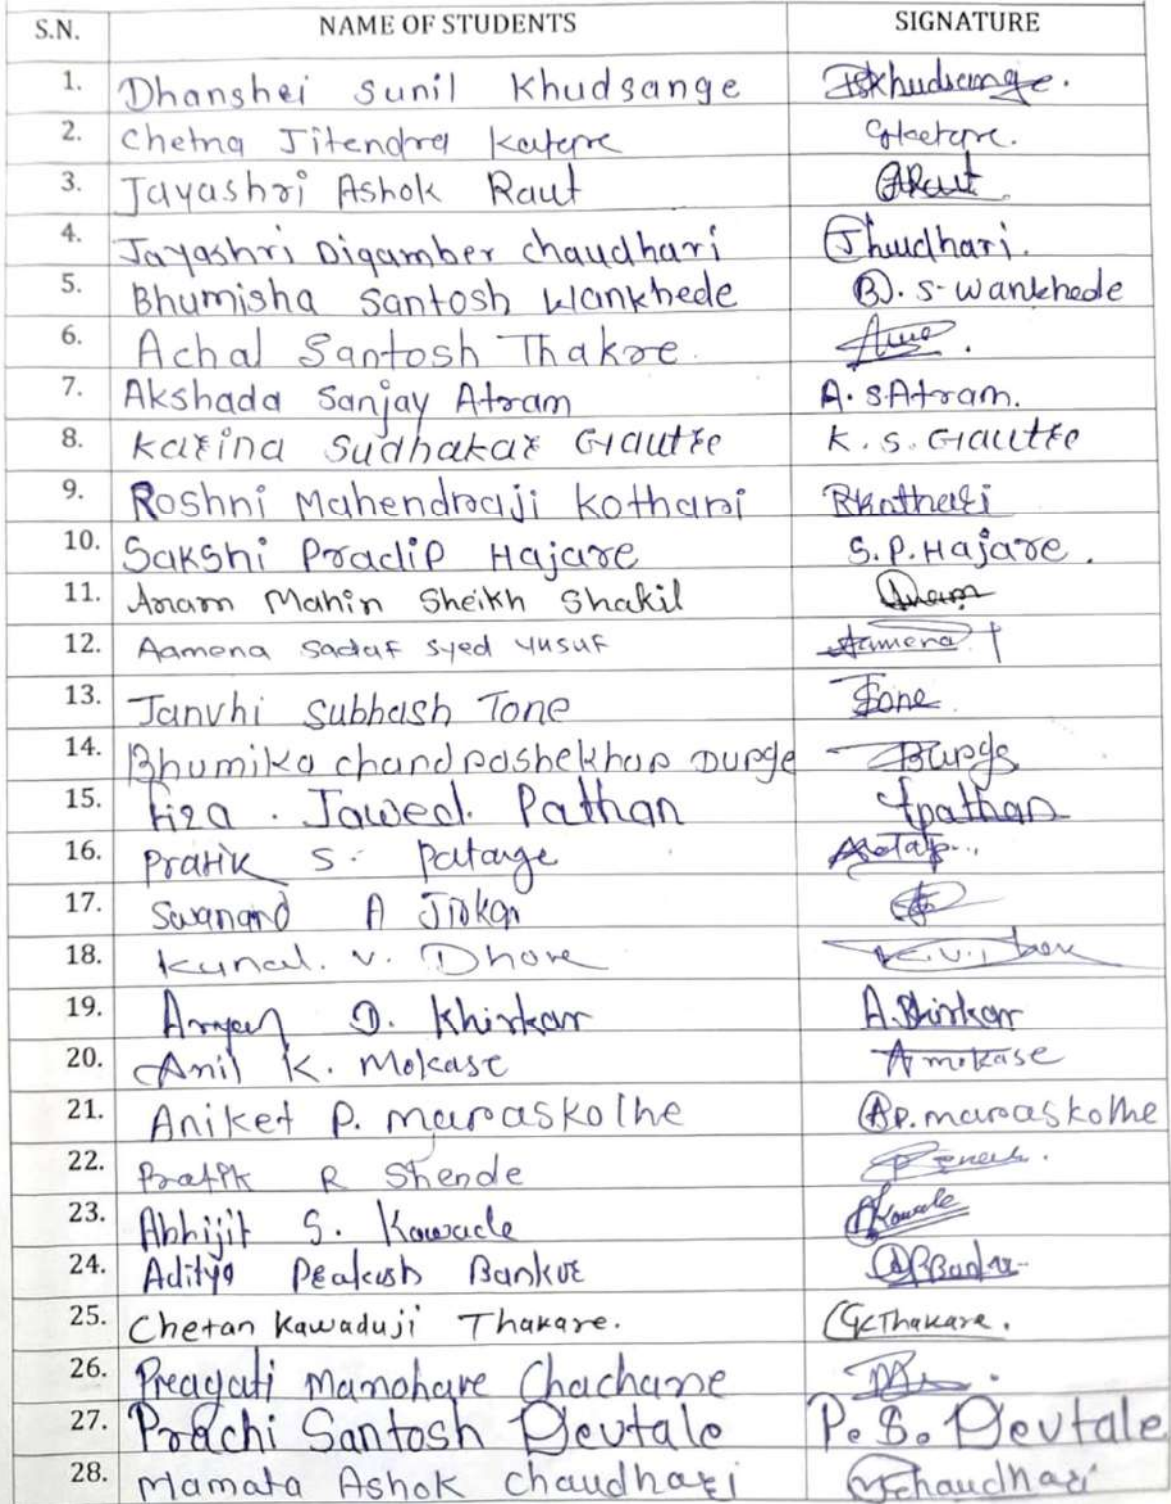 S.N. NAME OF STUDENTS SIGNATURE
1. Dhanshri Sunil Khudsange Dskhudsange.
2. Chetna Jitendra Katore
3. Jayashri Ashok Raut Raut
4. Jayashri Digamber chaudhari Jhaudhari.
5. Bhumisha Santosh Wankhede B. S. wankhede
6. Achal Santosh Thakre
7. Akshada Sanjay Atram A. S Atram.
8. Karina Sudhakar Gautre K. S. Gautre
9. Roshni Mahendraji Kothari RKothari
10. Sakshi Pradip Hajare S. P. Hajare.
11. Anam Mahin Sheikh Shakil Anam
12. Aamena Sadaf Syed Yusuf Aamena
13. Janvhi Subhash Tone Tone
14. Bhumika chandrashekhar Durge Durge
15. Fiza. Jawed. Pathan fpathan
16. Pratik S. Patange
17. Swanand A Jirkar
18. Kunal. V. Dhore K.V. Dhore
19. Aryan D. Khirkar A. Khirkar
20. Anil K. Mokase Amokase
21. Aniket P. maraskolhe A P. maraskolhe
22. Pratik R Shende
23. Abhijit S. Kawade Kawade
24. Aditya Prakash Bankar
25. Chetan Kawaduji Thakare. CKThakare.
26. Pragati Manohare Chachane
27. Prachi Santosh Devtale P. S. Devtale
28. Mamata Ashok Chaudhari Mchaudhari